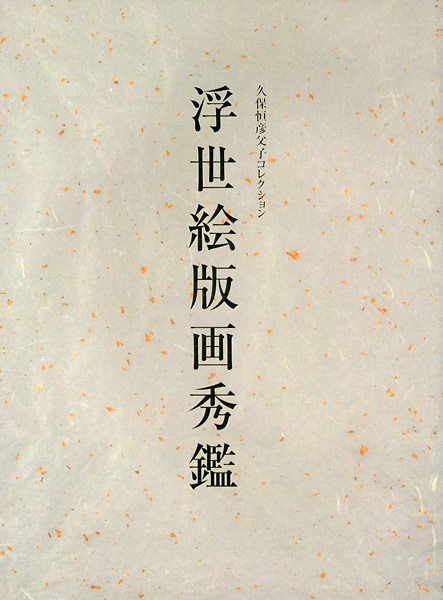 久保恒彦父子コレクション
浮世絵版画秀鑑